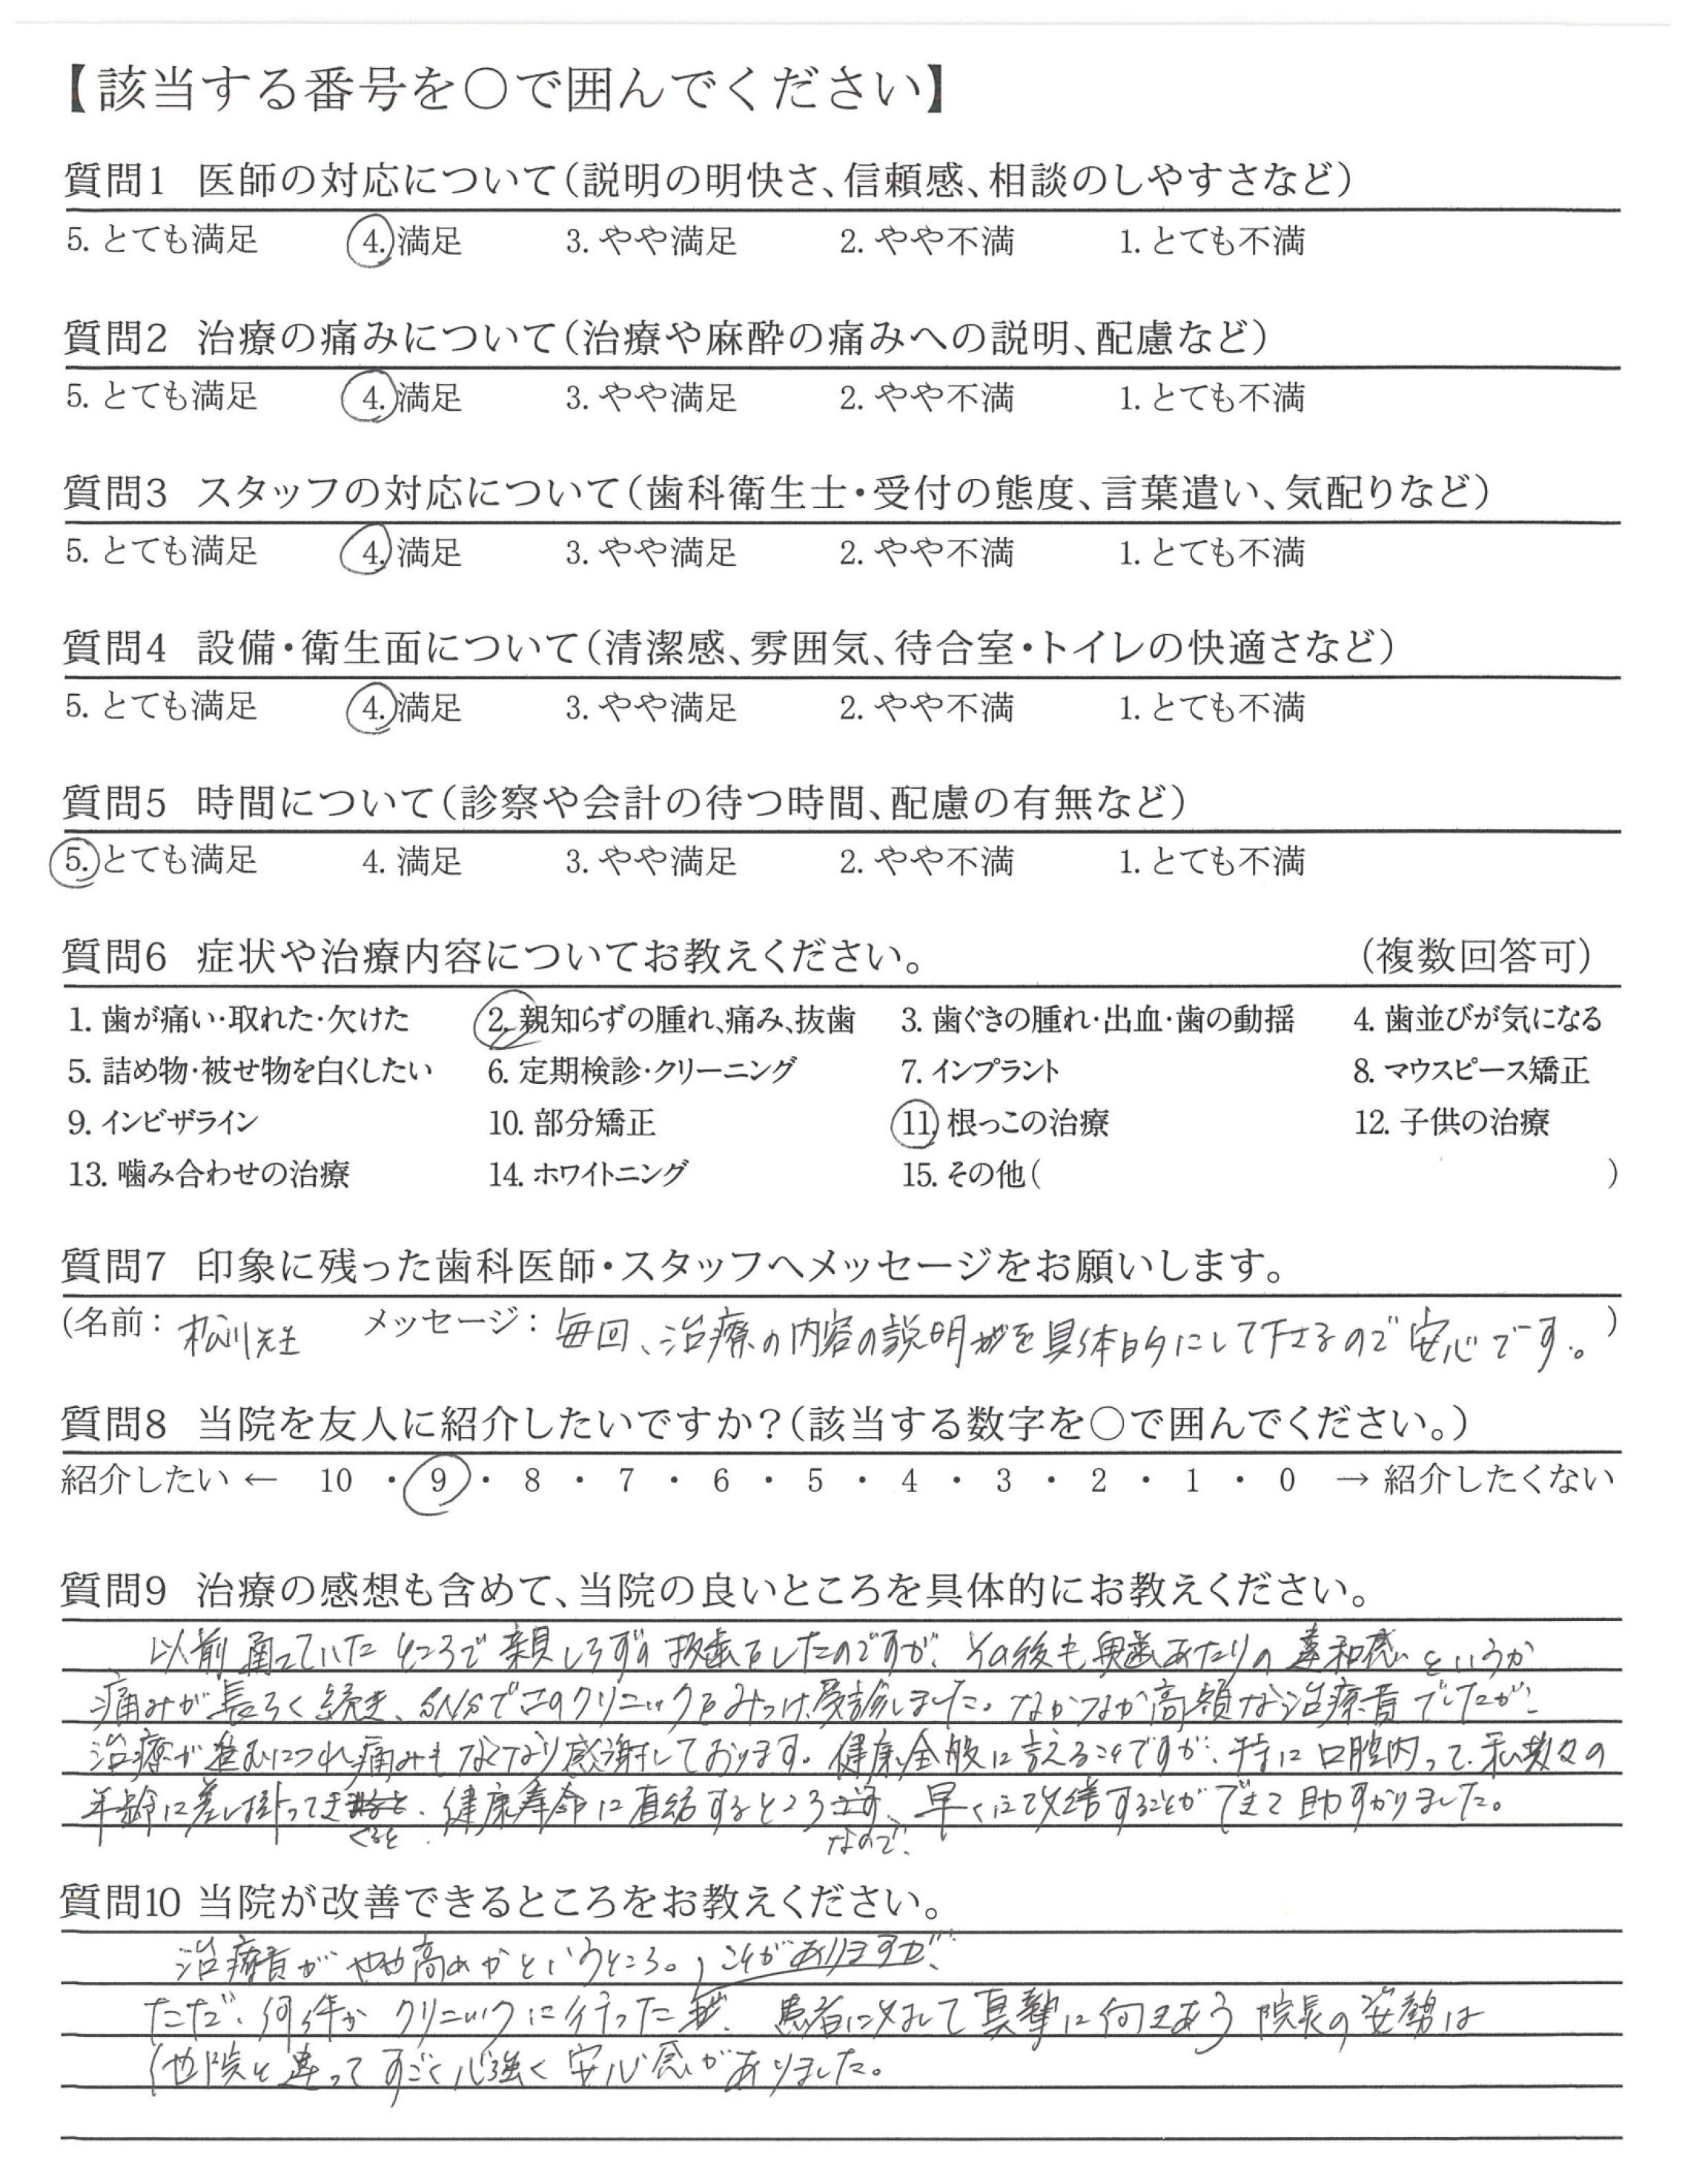 【該当する番号を○で囲んでください】
質問1 医師の対応について(説明の明快さ、信頼感、相談のしやすさなど)
5. とても満足 4. 満足 3. やや満足 2. やや不満 1. とても不満
質問2 治療の痛みについて(治療や麻酔の痛みへの説明、配慮など)
5. とても満足 4. 満足 3. やや満足 2. やや不満 1. とても不満
質問3 スタッフの対応について(歯科衛生士・受付の態度、言葉遣い、気配りなど)
5. とても満足 4. 満足 3. やや満足 2. やや不満 1. とても不満
質問4 設備・衛生面について(清潔感、雰囲気、待合室・トイレの快適さなど)
5. とても満足 4. 満足 3. やや満足 2. やや不満 1. とても不満
質問5 時間について(診察や会計の待つ時間、配慮の有無など)
5. とても満足 4. 満足 3. やや満足 2. やや不満 1. とても不満
質問6 症状や治療内容についてお教えください。 (複数回答可)
1. 歯が痛い・取れた・欠けた 2. 親知らずの腫れ、痛み、抜歯 3. 歯ぐきの腫れ・出血・歯の動揺 4. 歯並びが気になる
5. 詰め物・被せ物を白くしたい 6. 定期検診・クリーニング 7. インプラント 8. マウスピース矯正
9. インビザライン 10. 部分矯正 11. 根っこの治療 12. 子供の治療
13. 噛み合わせの治療 14. ホワイトニング 15. その他( )
質問7 印象に残った歯科医師・スタッフへメッセージをお願いします。
(名前: 松川先生 メッセージ: 毎回、治療の内容の説明を具体的にして下さるので安心です。)
質問8 当院を友人に紹介したいですか?(該当する数字を○で囲んでください。)
紹介したい ← 10 ・ 9 ・ 8 ・ 7 ・ 6 ・ 5 ・ 4 ・ 3 ・ 2 ・ 1 ・ 0 → 紹介したくない
質問9 治療の感想も含めて、当院の良いところを具体的にお教えください。
以前通っていたところで親しらずの抜歯をしたのですが、その後も奥歯あたりの違和感というか
痛みが長らく続き、SNSでこのクリニックをみつけ、受診しました。なかなか高額な治療費でしたが、
治療が進むにつれ痛みもなくなり感謝しております。健康全般に言えることですが、特に口腔内って、私
年齢に差し掛ってくると、健康寿命に直結するところなので、早くに改善することができて助かりました。
質問10 当院が改善できるところをお教えください。
治療費がやや高めかというところ。
ただ、何件かクリニックに行った 患者に対して真摯に向きあう院長の姿勢は
他院と違ってすごく心強く安心感がありました。